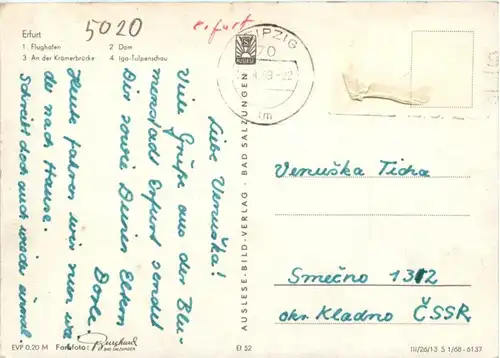 5020
erfurt
Erfurt
1 Flughafen 2 Dom
3 An der Krämerbrücke 4 Iga-Tulpenschau
Liebe Venuška!
Viele Grüße aus der Blu-
menstadt Erfurt sendet
Dir sowie Deinen Eltern
Dorle.
Heute fahren wir nun wie-
der nach Hause.
Schreibt doch auch wieder einmal.
EVP 0,20 M Farbfoto: Burghard
BAD SALZUNGEN
AUSLESE-BILD-VERLAG · BAD SALZUNGEN
AUSLESE
Ef 52
LEIPZIG
70
Venuška Tichá
Smečno 132
okr. Kladno ČSSR
III/26/13 S 1/68 - 6137